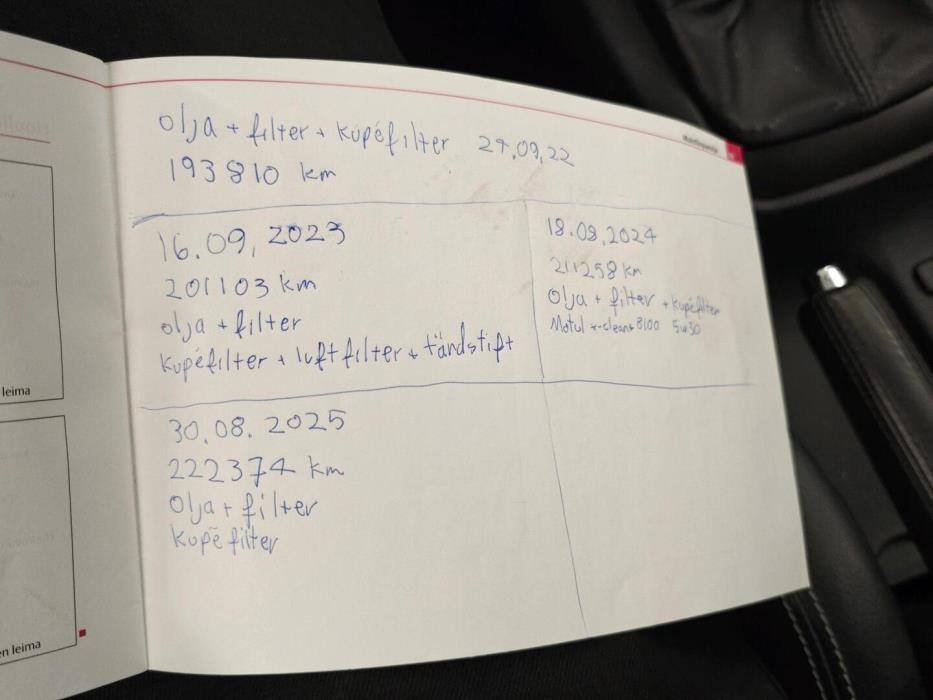 olja + filter + kupéfilter 27.09.22
193810 km
16.09, 2023
201103 km
olja + filter
kupéfilter + luftfilter + tändstift
18.08.2024
211258 km
Olja + filter + kupéfilter
Motul x-clean 8100 5w30
30.08. 2025
222374 km
Olja + filter
kupéfilter
leima
en leima